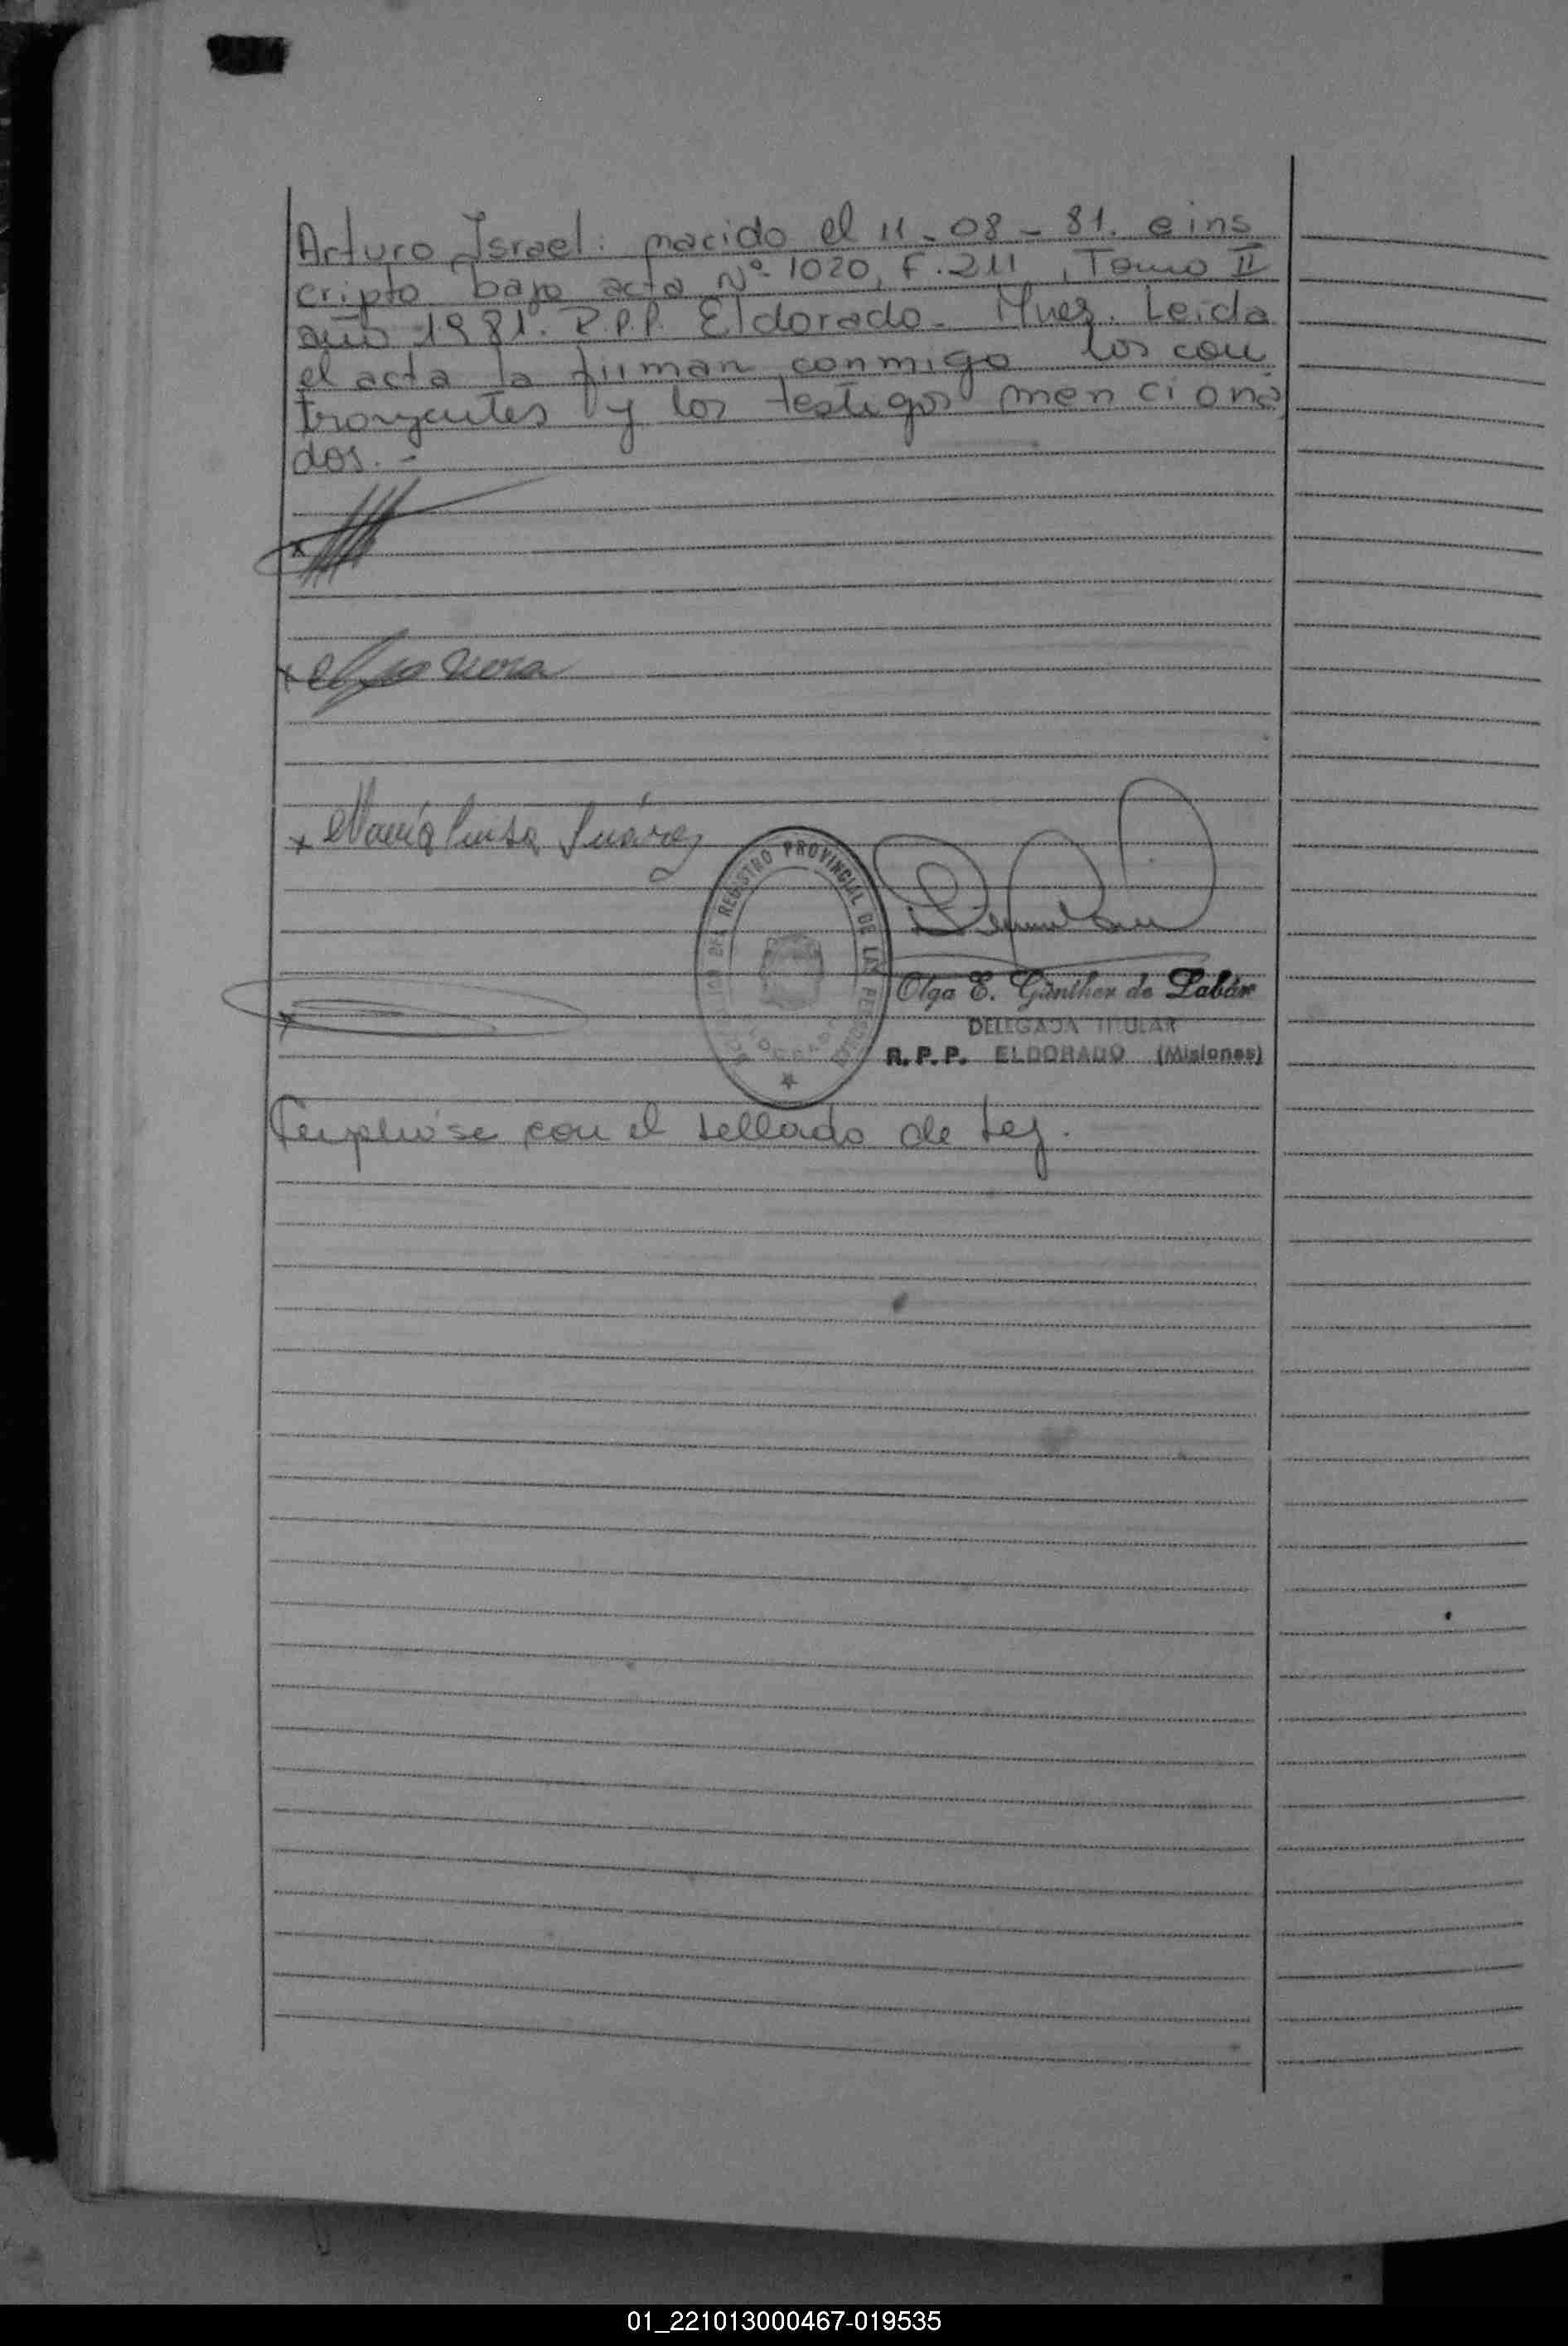 Arturo Israel: nacido el 11-08-81. e ins
cripto bajo acta Nº 1020, F. 211, Tomo II
año 1981. R.P.P. Eldorado. Mnes. Leida
el acta la firman conmigo los con
trayentes y los testigos menciona
dos.-
x
x Nora
x María Luisa Suárez
DEL REGISTRO PROVINCIAL DE LAS PERSONAS
Olga E. Günther de Labár
DELEGADA TITULAR
x
R.P.P. ELDORADO (Misiones)
Cumplióse con el sellado de Ley.
01_221013000467-019535